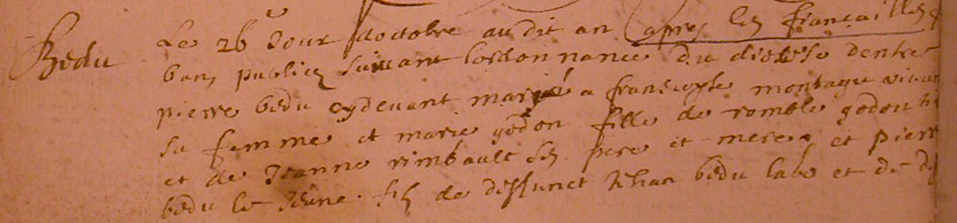 Bedu
Le 26e Jour doctobre audit an apres les fiancailles
bans publies suivant lordonnance du diocese dentre
pierre bedu cydevant marié a francoyse montagu vivant
sa femme et marie godon fille de romble godon
et de Jeanne rimbault ses pere et mere et pierre
bedu le Jeune fils de deffunct Jehan bedu labo et de